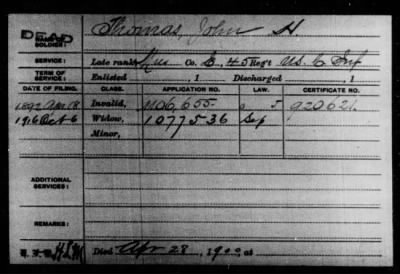 DEAD
NAME OF SOLDIER: Thomas, John H.
SERVICE: Late rank Mus Co. E, 45 Reg't U.S. C Inf
TERM OF SERVICE: Enlisted , 1 Discharged , 1
DATE OF FILING. CLASS. APPLICATION NO. LAW. CERTIFICATE NO.
1892 Apr 18 Invalid, 1106,655 J 920621
1916 Oct 6 Widow, 1077536 Sep
Minor,
ADDITIONAL SERVICES:
REMARKS:
Died Apr 28, 1900, at